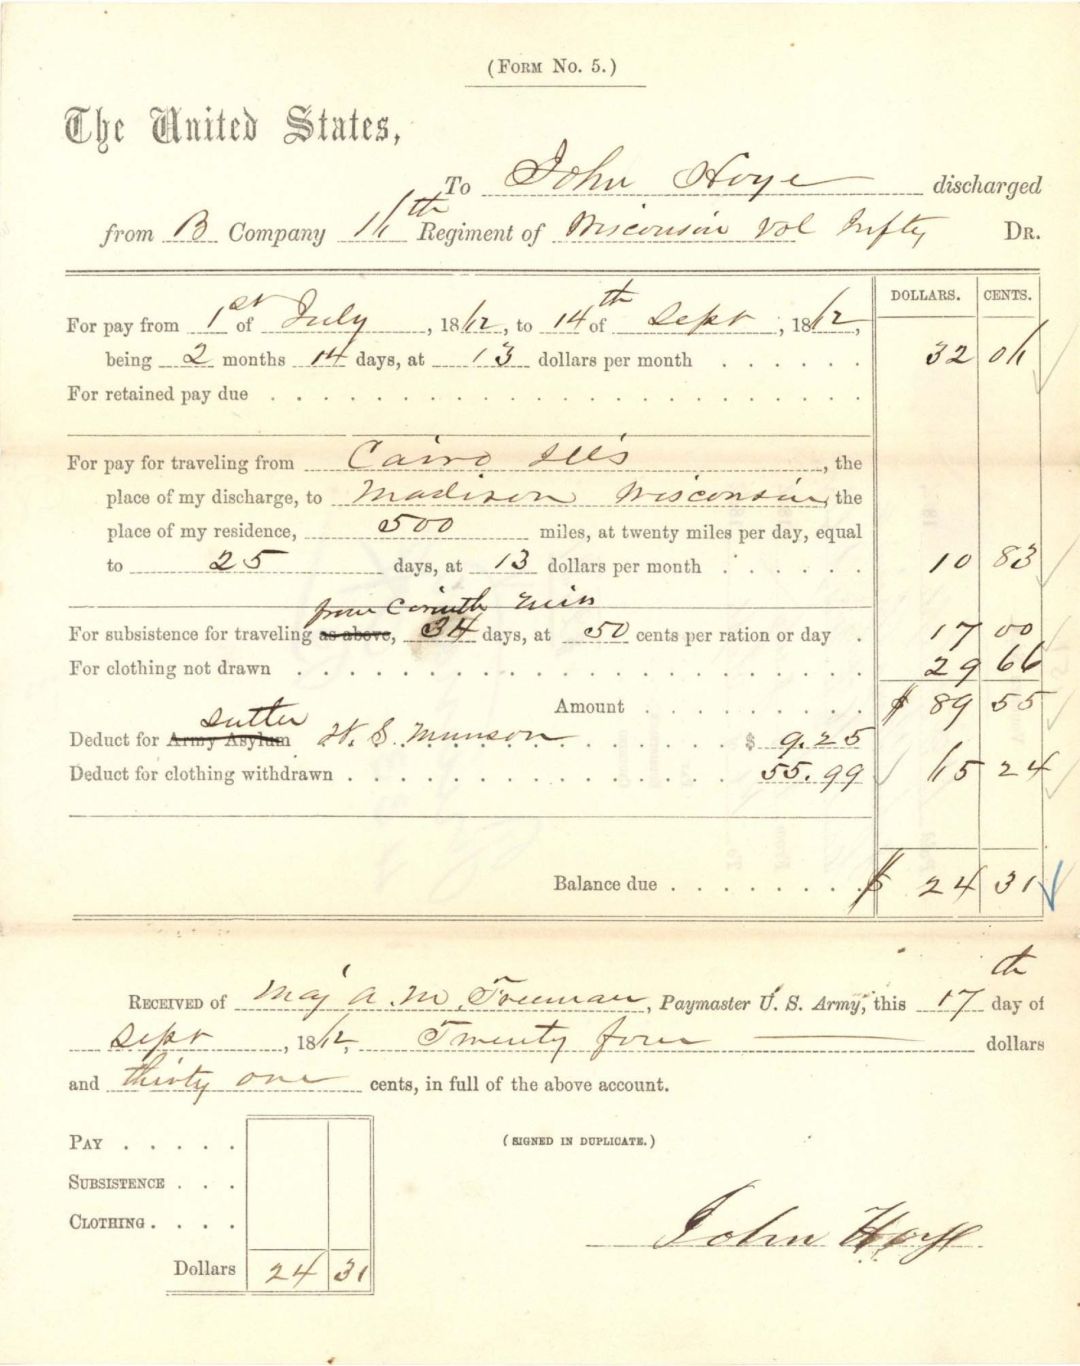 (FORM No. 5.)
The United States,
To John Hoye discharged
from B Company 16th Regiment of Wisconsin Vol Infty DR.
DOLLARS. CENTS.
For pay from 1st of July, 1862, to 14th of Sept, 1862,
being 2 months 14 days, at 13 dollars per month . . . . . . 32 06
For retained pay due . . . . . . . . . . . . . . . . . . . . . . .
For pay for traveling from Cairo Ills, the
place of my discharge, to Madison Wisconsin, the
place of my residence, 500 miles, at twenty miles per day, equal
to 25 days, at 13 dollars per month . . . . . . 10 83
from Corinth Miss
For subsistence for traveling as above, 34 days, at 50 cents per ration or day . 17 00
For clothing not drawn . . . . . . . . . . . . . . . . . . . . . . 29 66
Amount . . . . . . . . . $ 89 55
Sutler
Deduct for Army Asylum W. S. Munson . . . . . . . . $ 9.25
Deduct for clothing withdrawn . . . . . . . . . . . . . . . 55.99 65 24
Balance due . . . . . . . . $ 24 31
RECEIVED of Maj A. M. Freeman, Paymaster U. S. Army, this 17th day of
Sept, 1862, Twenty four dollars
and thirty one cents, in full of the above account.
PAY . . . . .
(SIGNED IN DUPLICATE.)
SUBSISTENCE . . .
CLOTHING . . . .
John Hoye
Dollars 24 31